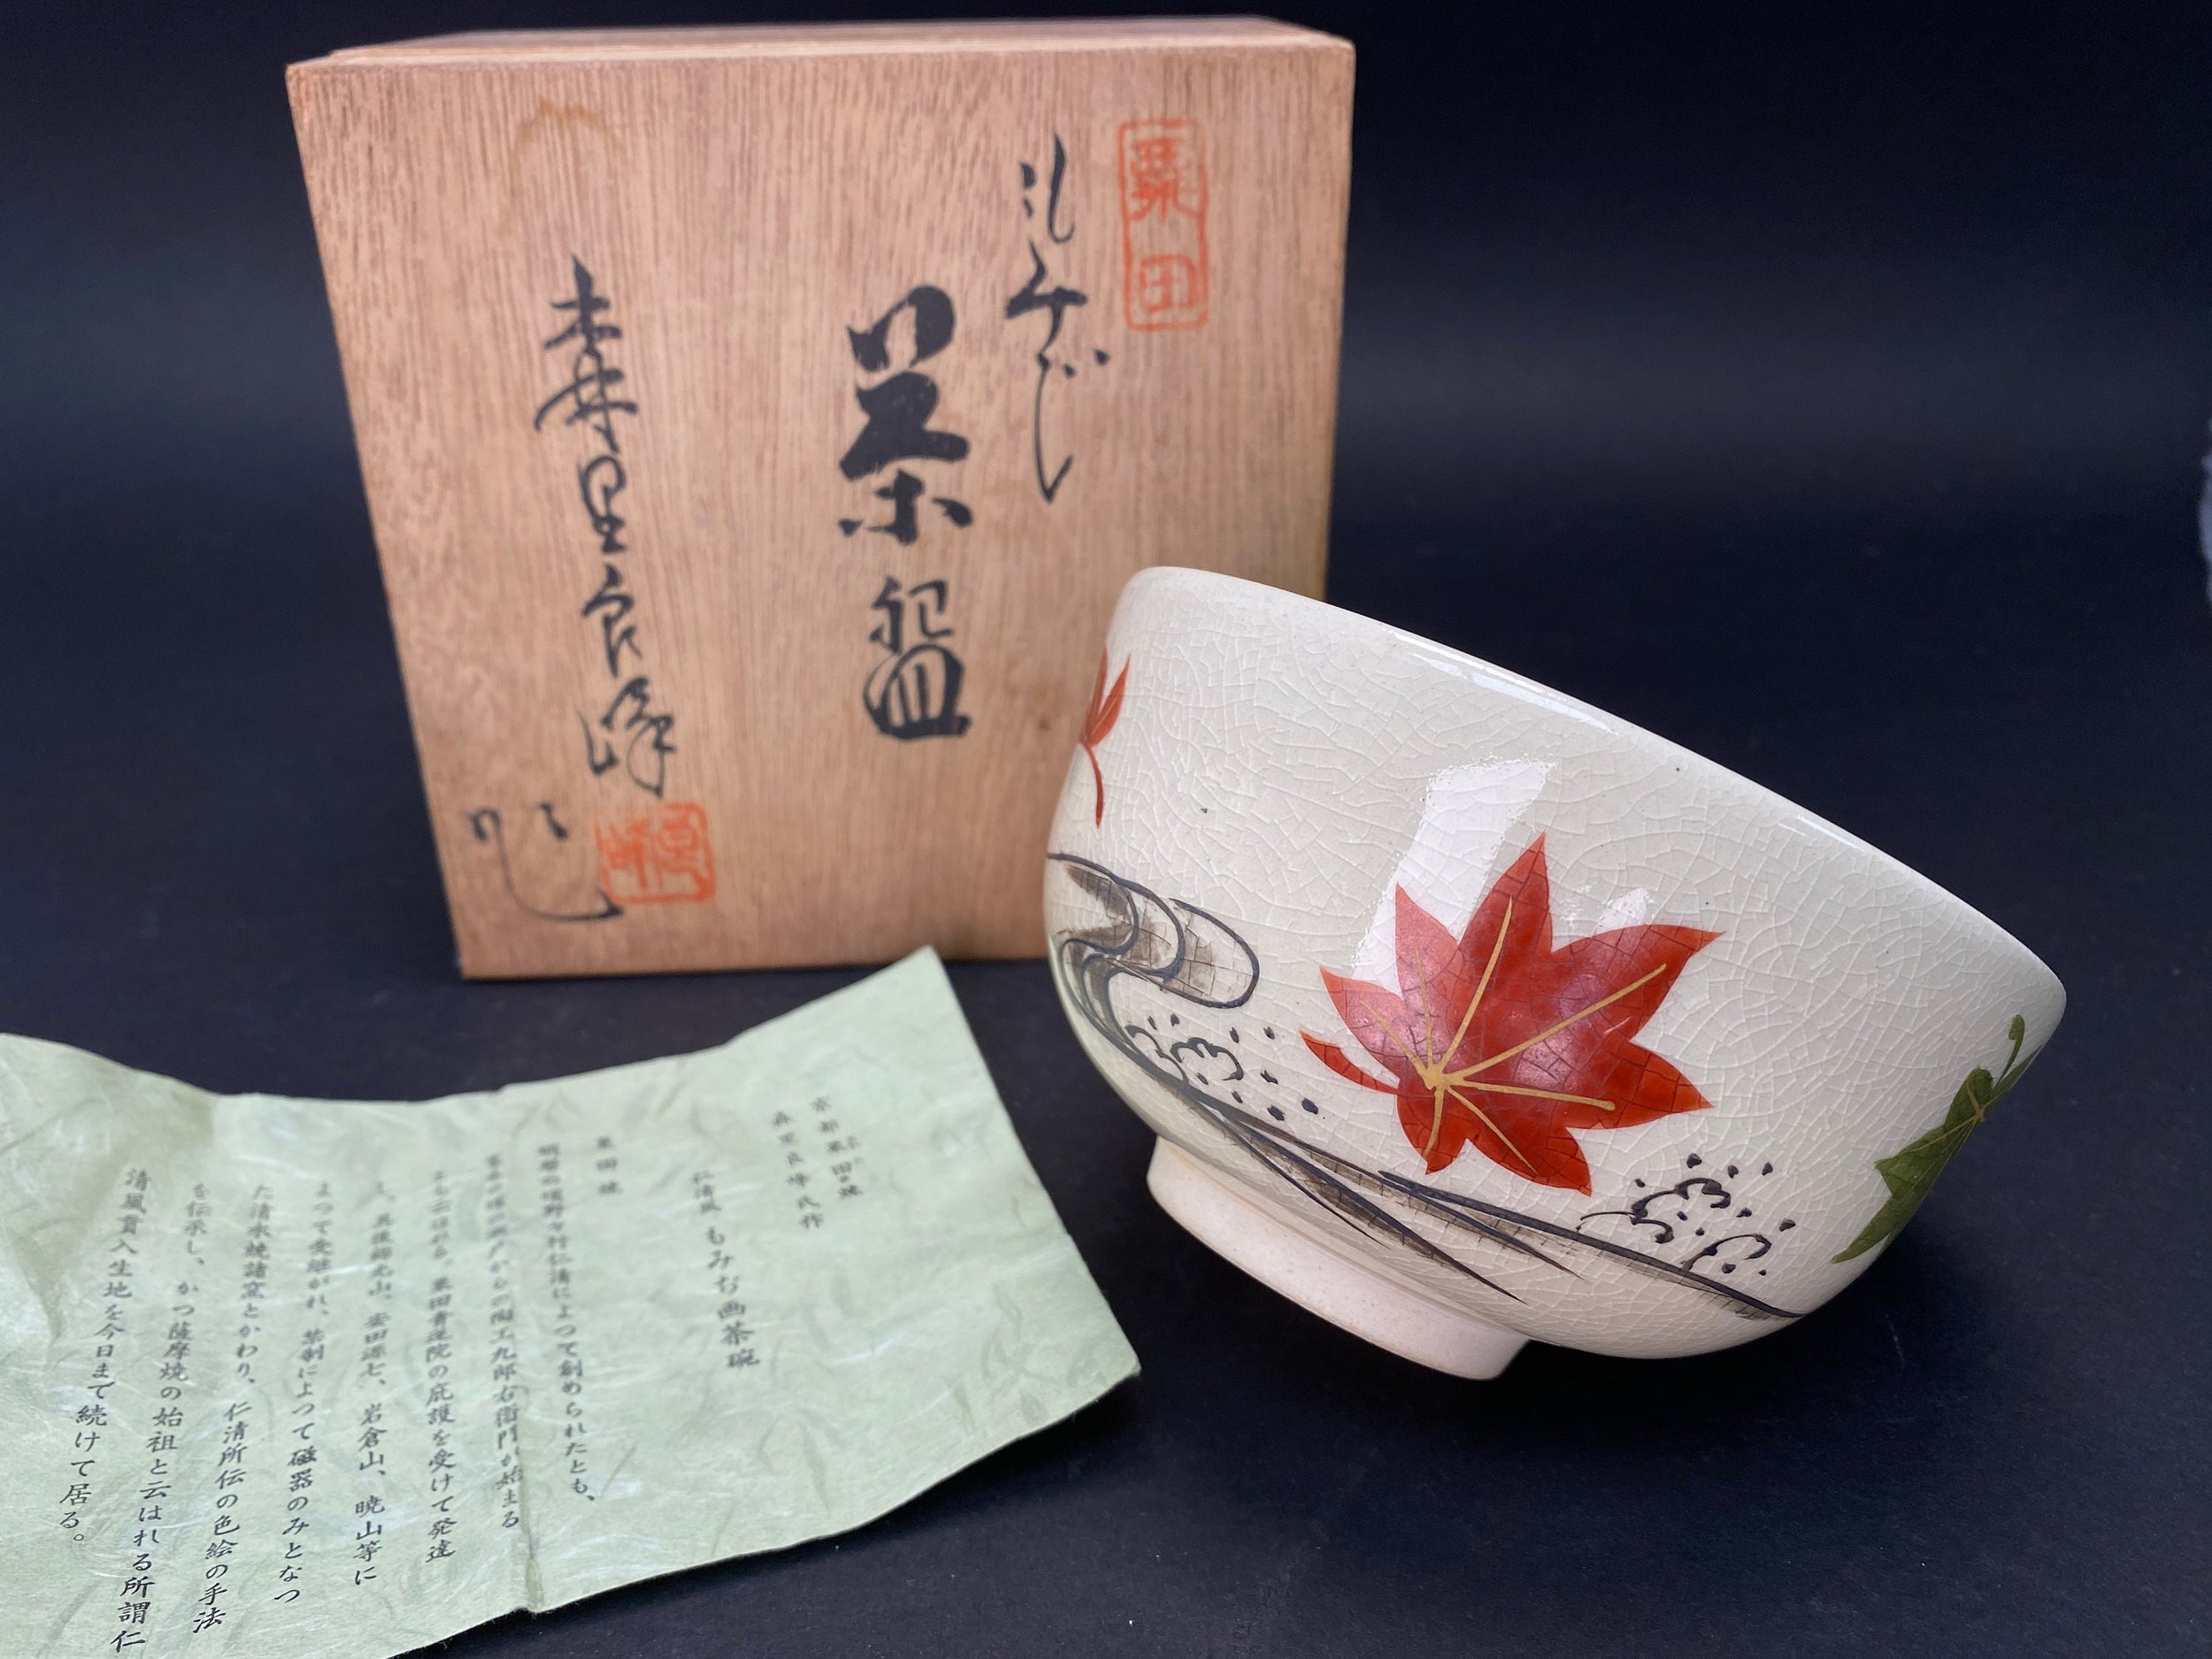 粟田
もみぢ
茶盌
森里良峰
作
京都粟田焼
森里良峰氏作
仁清風 もみぢ画茶碗
粟田焼
明暦の頃野々村仁清によつて創められたとも、
の陶工九郎右衛門が始まる
とも云はれる。粟田青蓮院の庇護を受けて発達
し、其後錦光山、宝田源七、岩倉山、暁山等に
よつて受継がれ、茶剃によつて磁器のみとなつ
た清水焼諸窯とかわり、仁清所伝の色絵の手法
を伝承し、かつ薩摩焼の始祖と云はれる所謂仁
清風貫入生地を今日まで続けて居る。